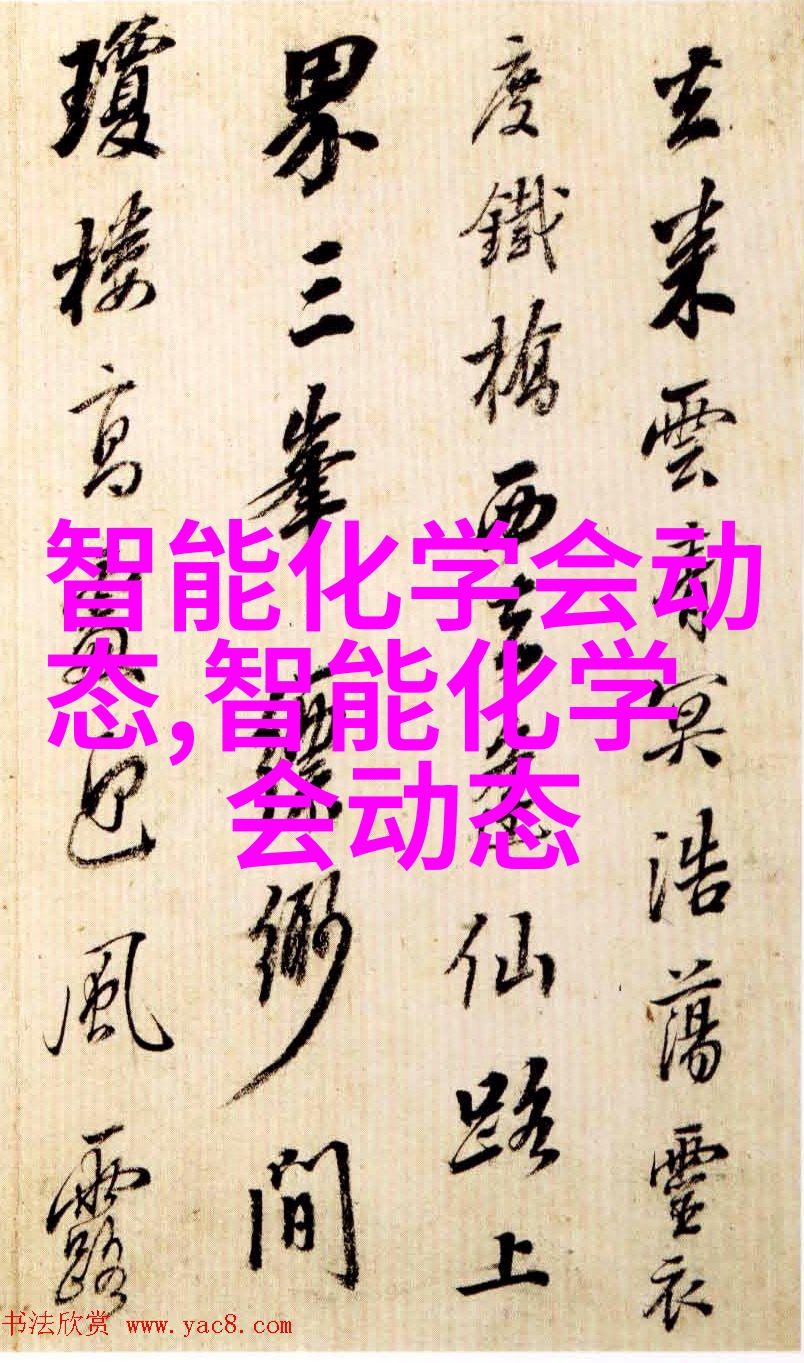 去来雲冥浩蕩靈衣
度鐵橋西仙路上
界三峯緲間
瓊樓高風露
智能化学会动
态,智能化学
会动态
书法欣赏 www.yac8.com